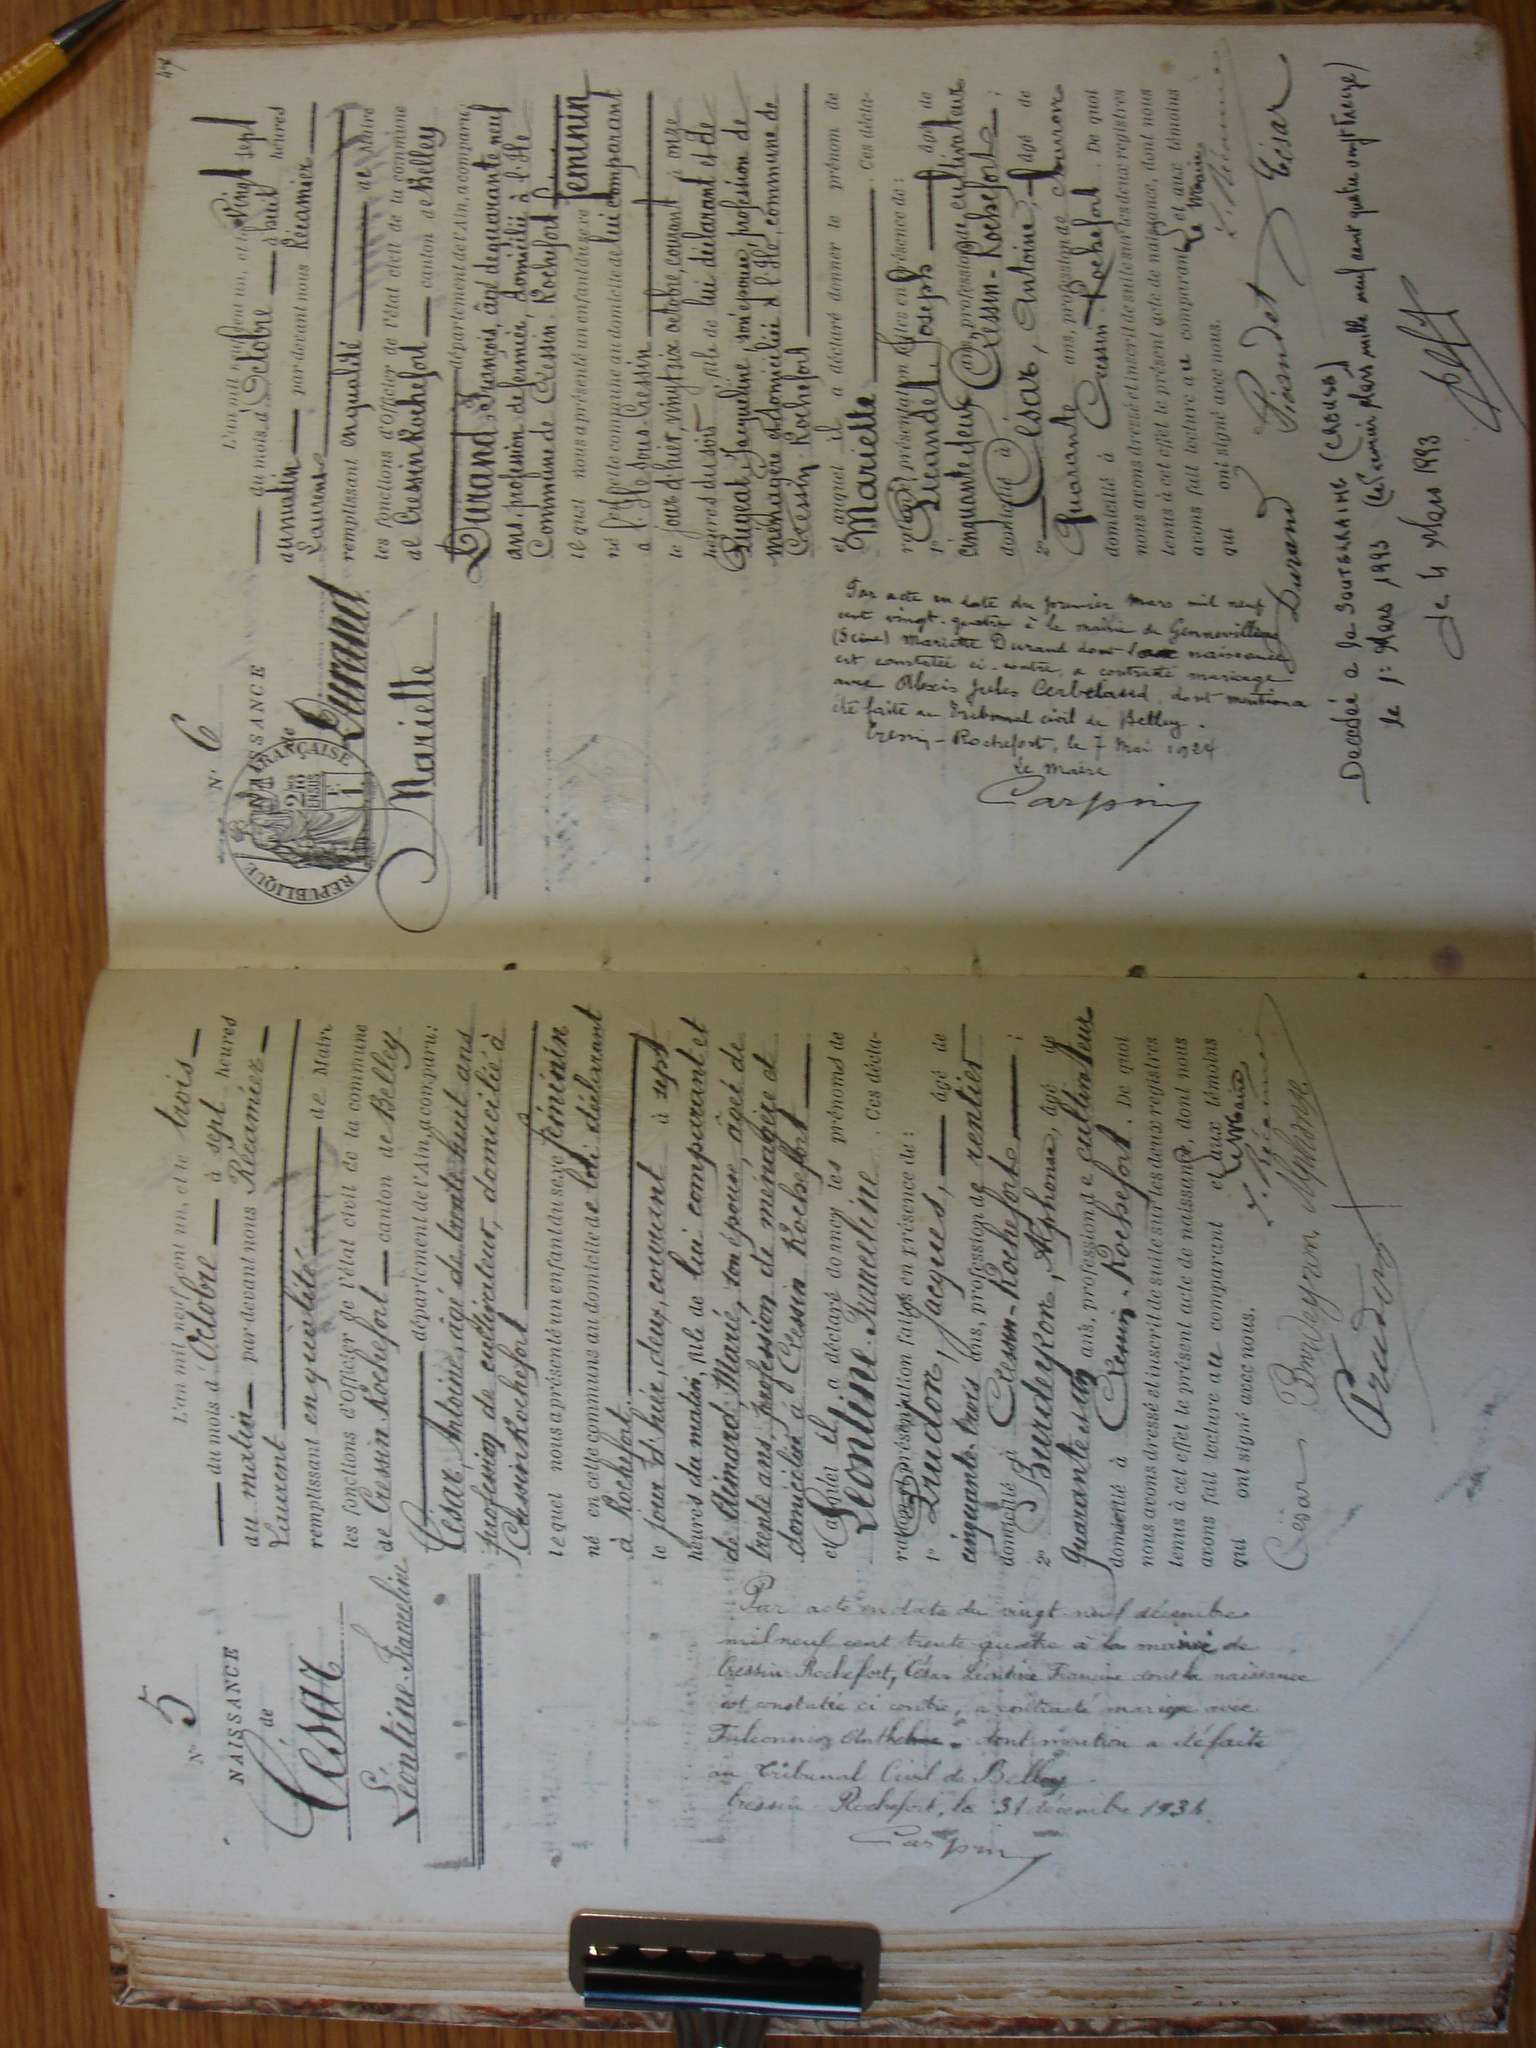 N° 5
NAISSANCE
de
César
Léontine-Francline
L'an mil neuf cent un, et le trois
du mois d'Octobre à sept heures
au matin par-devant nous Récamier
Laurent
remplissant en qualité de Maire
les fonctions d'Officier de l'état civil de la commune
de Cressin Rochefort canton de Belley
département de l'Ain, a comparu:
César, Antoine, âgé de trente huit ans
profession de cultivateur, domicilié à
Cressin Rochefort
lequel nous a présenté un enfant du sexe féminin
né en cette commune au domicile de lui déclarant
à Rochefort
le jour d'hier, deux, courant à sept
heures du matin, fille de lui comparant et
de Marie, son épouse, âgée de
trente ans, profession de ménagère et
domiciliée à Cressin Rochefort
et auquel il a déclaré donner les prénoms de
Léontine Francline . Ces décla-
ration et présentation faites en présence de:
1° Prudon, Jacques, âgé de
cinquante-trois ans, profession de rentier
domicilié à Cressin-Rochefort ;
2° Burdeyron, Alphonse, âgé de
quarante et un ans, profession de cultivateur
domicilié à Cressin-Rochefort. De quoi
nous avons dressé et inscrit de suite sur les deux registres
tenus à cet effet le présent acte de naissance, dont nous
avons fait lecture au comparant et aux témoins
qui ont signé avec nous. Le Maire
César Burdeyron Alphonse
Prudon
Par acte en date du vingt neuf décembre
mil neuf cent trente quatre à la mairie de
Cressin-Rochefort, César Léontine Francine dont la naissance
est constatée ci contre, a contracté mariage avec
dont mention a été faite
au Tribunal Civil de Belley
Cressin-Rochefort, le 31 décembre 1934
Carpin
47
N° 6
NAISSANCE
de
Durand
Mariette
RÉPUBLIQUE FRANÇAISE
L'an mil neuf cent un, et le vingt sept
du mois d'Octobre à huit heures
du matin par-devant nous Récamier
Laurent
remplissant en qualité de Maire
les fonctions d'Officier de l'état civil de la commune
de Cressin Rochefort canton de Belley
département de l'Ain, a comparu
Durand, François, âgé de quarante neuf
ans profession de fermier, domicilié à l'Ile
Commune de Cressin Rochefort
lequel nous a présenté un enfant du sexe féminin
né en cette commune au domicile de lui comparant
à l'Ile sous Cressin
le jour d'hier, vingt six octobre, courant à onze
heures du soir fille de lui déclarant et de
Pugeat, Jacqueline, son épouse, profession de
ménagère et domiciliée à l'Ile, commune de
Cressin-Rochefort
et auquel il a déclaré donner le prénom de
Mariette . Ces décla-
ration et présentation faites en présence de:
1° Picandet, Joseph âgé de
cinquante deux ans, profession de cultivateur
domicilié à Cressin-Rochefort ;
2° César, Antoine, âgé de
Quarante ans, profession de
domicilié à Cressin-Rochefort. De quoi
nous avons dressé et inscrit de suite sur les deux registres
tenus à cet effet le présent acte de naissance, dont nous
avons fait lecture au comparant et aux témoins
qui ont signé avec nous. Le Maire
Durand Picandet César
Par acte en date du premier Mars mil neuf
cent vingt-quatre à la mairie de Gennevilliers
(Seine) Mariette Durand dont la naissance
est constatée ci-contre, a contracté mariage
avec Alexis Jules Cerbelaud, dont mention a
été faite au Tribunal civil de Belley.
Cressin-Rochefort, le 7 Mai 1924
Le Maire
Carpin
Décédée à La SOUTERRAINE (CREUSE)
le 1er Mars 1993 (le premier Mars mille neuf cent quatre vingt treize)
le 4 Mars 1993